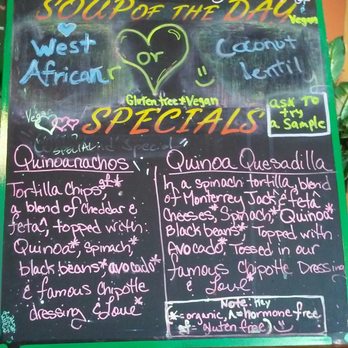 SOUP OF THE DAY
Vegan
West
African
or
Coconut
Lentil
Gluten free + Vegan
Vegan
SPECIALS
ASK TO
try
a Sample
Quinoarachos
Tortilla chips gf*
a blend of cheddar &
feta^, topped with:
Quinoa*, spinach*
black beans* avocado*
& famous chipotle
dressing & Love*
Quinoa Quesadilla
In a spinach tortilla, blend
of Monterrey Jack & feta
cheeses, Spinach* Quinoa*
Black beans* Topped with
Avocado*, Tossed in our
famous Chipotle Dressing
& Love
Note: Key
*=organic, ^=hormone-free
gf - gluten free